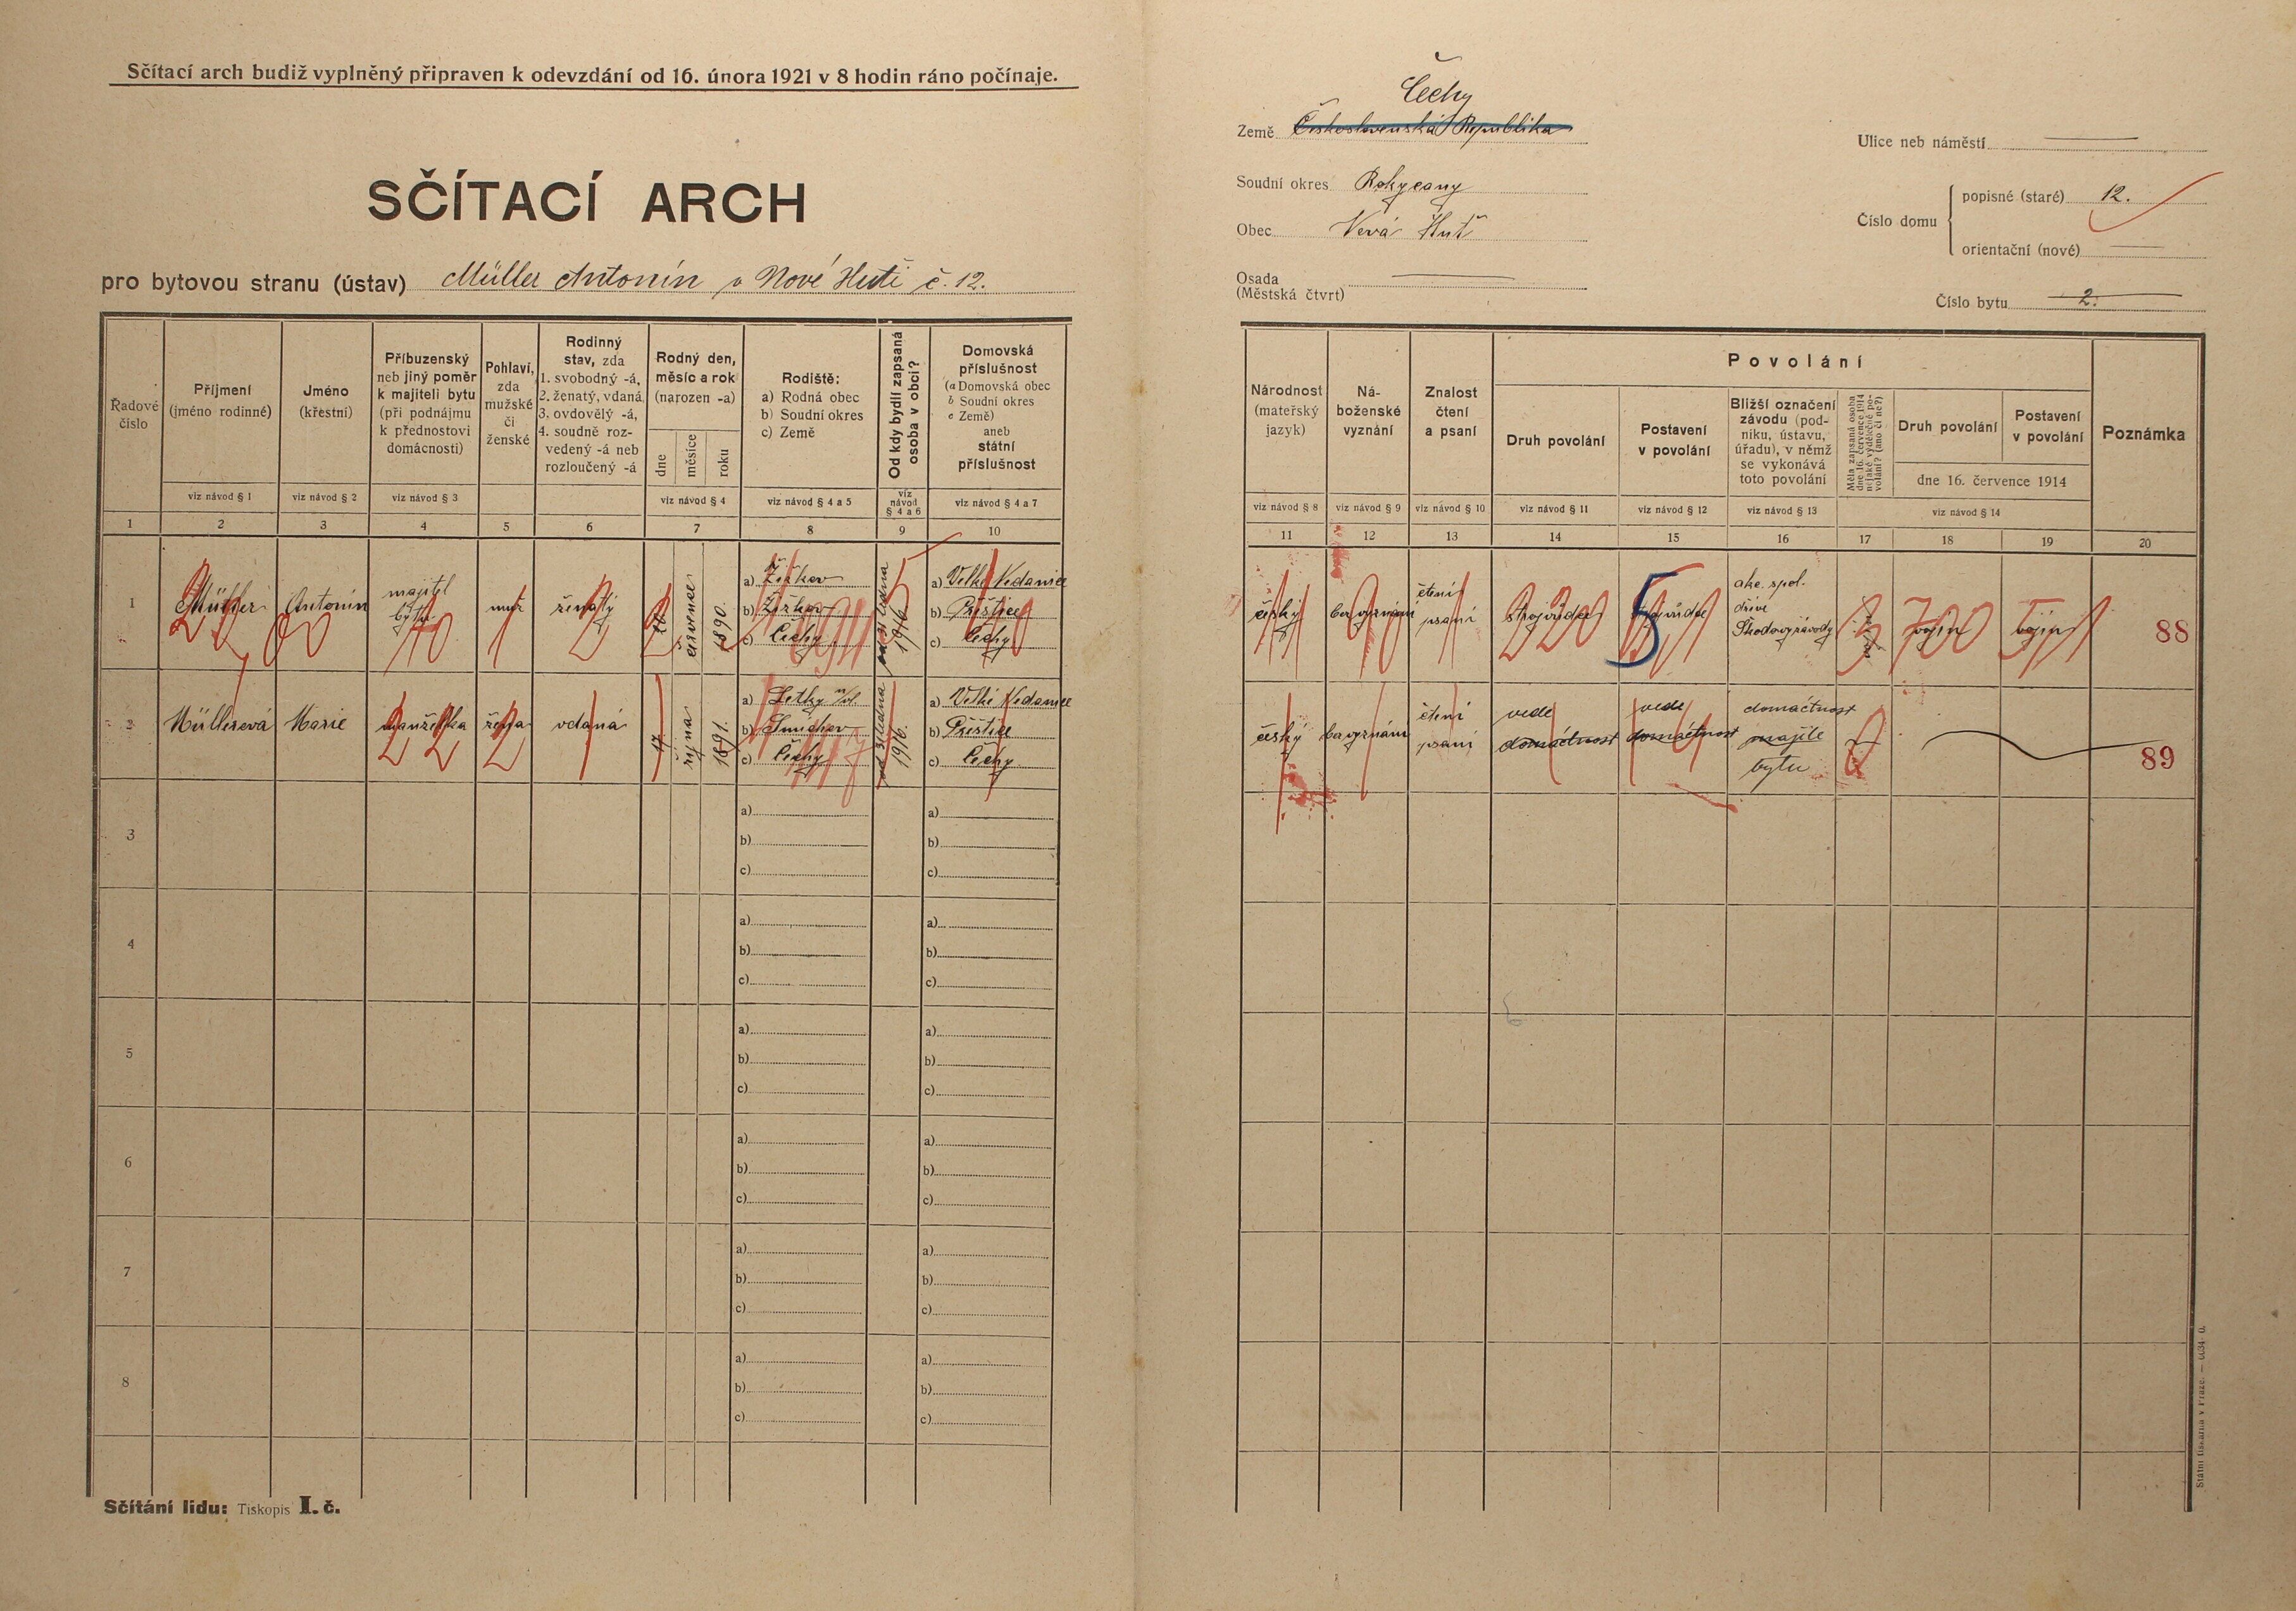 Sčítací arch budiž vyplněný připraven k odevzdání od 16. února 1921 v 8 hodin ráno počínaje.
SČÍTACÍ ARCH
pro bytovou stranu (ústav) Müller Antonín v Nové Huti č. 12.
Čechy
Země Československá Republika
Soudní okres Rokycany
Obec Nová Huť
Osada
(Městská čtvrť)
Ulice neb náměstí
Číslo domu
popisné (staré) 12.
orientační (nové)
Číslo bytu 2.
Řadové
číslo
Příjmení
(jméno rodinné)
viz návod § 1
Jméno
(křestní)
viz návod § 2
Příbuzenský
neb jiný poměr
k majiteli bytu
(při podnájmu
k přednostovi
domácnosti)
viz návod § 3
Pohlaví,
zda
mužské
či
ženské
Rodinný
stav, zda
1. svobodný -á,
2. ženatý, vdaná,
3. ovdovělý -á,
4. soudně roz-
vedený -á neb
rozloučený -á
Rodný den,
měsíc a rok
(narozen -a)
dne
měsíce
roku
viz návod § 4
Rodiště:
a) Rodná obec
b) Soudní okres
c) Země
viz návod § 4 a 5
Od kdy bydlí zapsaná
osoba v obci?
viz
návod
§ 4 a 6
Domovská
příslušnost
(a Domovská obec
b Soudní okres
c Země)
aneb
státní
příslušnost
viz návod § 4 a 7
Národnost
(mateřský
jazyk)
viz návod § 8
Ná-
boženské
vyznání
viz návod § 9
Znalost
čtení
a psaní
viz návod § 10
Povolání
Druh povolání
viz návod § 11
Postavení
v povolání
viz návod § 12
Bližší označení
závodu (pod-
niku, ústavu,
úřadu), v němž
se vykonává
toto povolání
viz návod § 13
Měla zapsaná osoba
dne 16. července 1914
nějaké výdělečné po-
volání? (ano či ne?)
Druh povolání
Postavení
v povolání
dne 16. července 1914
viz návod § 14
Poznámka
1 2 3 4 5 6 7 8 9 10
11 12 13 14 15 16 17 18 19 20
1
Müller
Antonín
majitel
bytu
muž
ženatý
července
1890.
a) Žižkov
b) Žižkov
c) Čechy
1916
a) Velké Nedanice
b) Přeštice
c) Čechy
český
bez vyznání
čtení
psaní
strojvůdce
strojvůdce
5
akc. spol.
dříve
Škodovy závody
3
700
vojín
vojín
88
2
Müllerová
Marie
manželka
žena
vdaná
17.
října
1891.
a) Letky n/Vl.
b) Smíchov
c) Čechy
od ledna
1916.
a) Velké Nedanice
b) Přeštice
c) Čechy
český
bez vyznání
čtení
psaní
vede
domácnost
vede
domácnost
domáctnost
majite
bytu
0
89
3
a)
b)
c)
a)
b)
c)
4
a)
b)
c)
a)
b)
c)
5
a)
b)
c)
a)
b)
c)
6
a)
b)
c)
a)
b)
c)
7
a)
b)
c)
a)
b)
c)
8
a)
b)
c)
a)
b)
c)
Sčítání lidu: Tiskopis I. č.